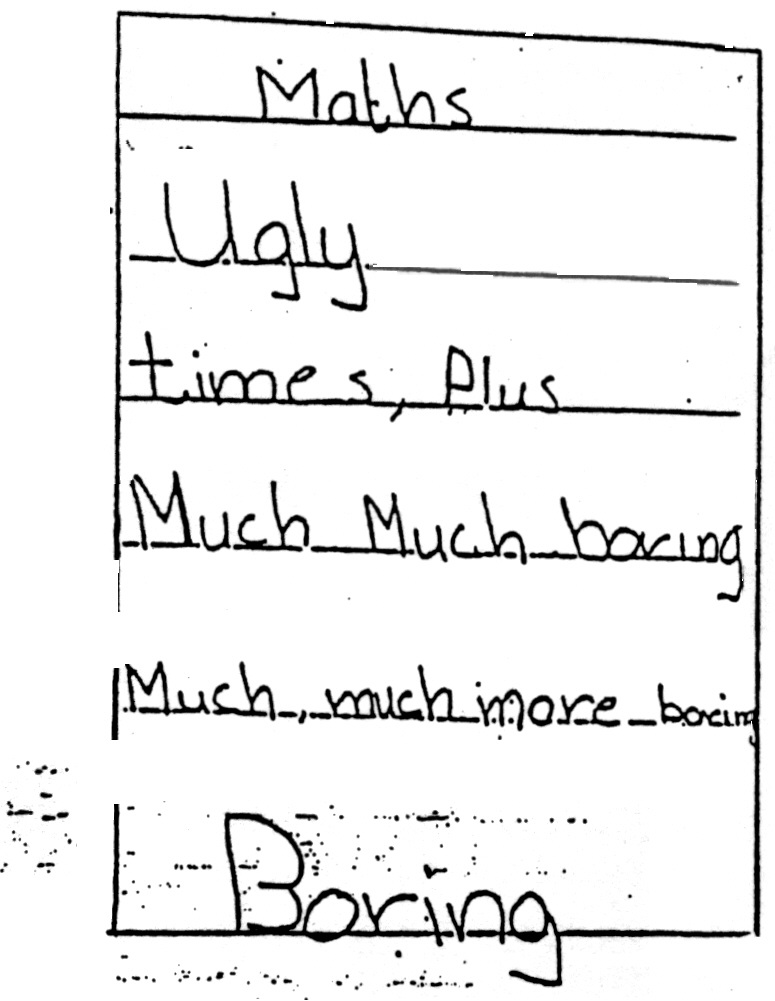 Maths
Ugly
times, Plus
Much Much boring
Much, much more boring
Boring